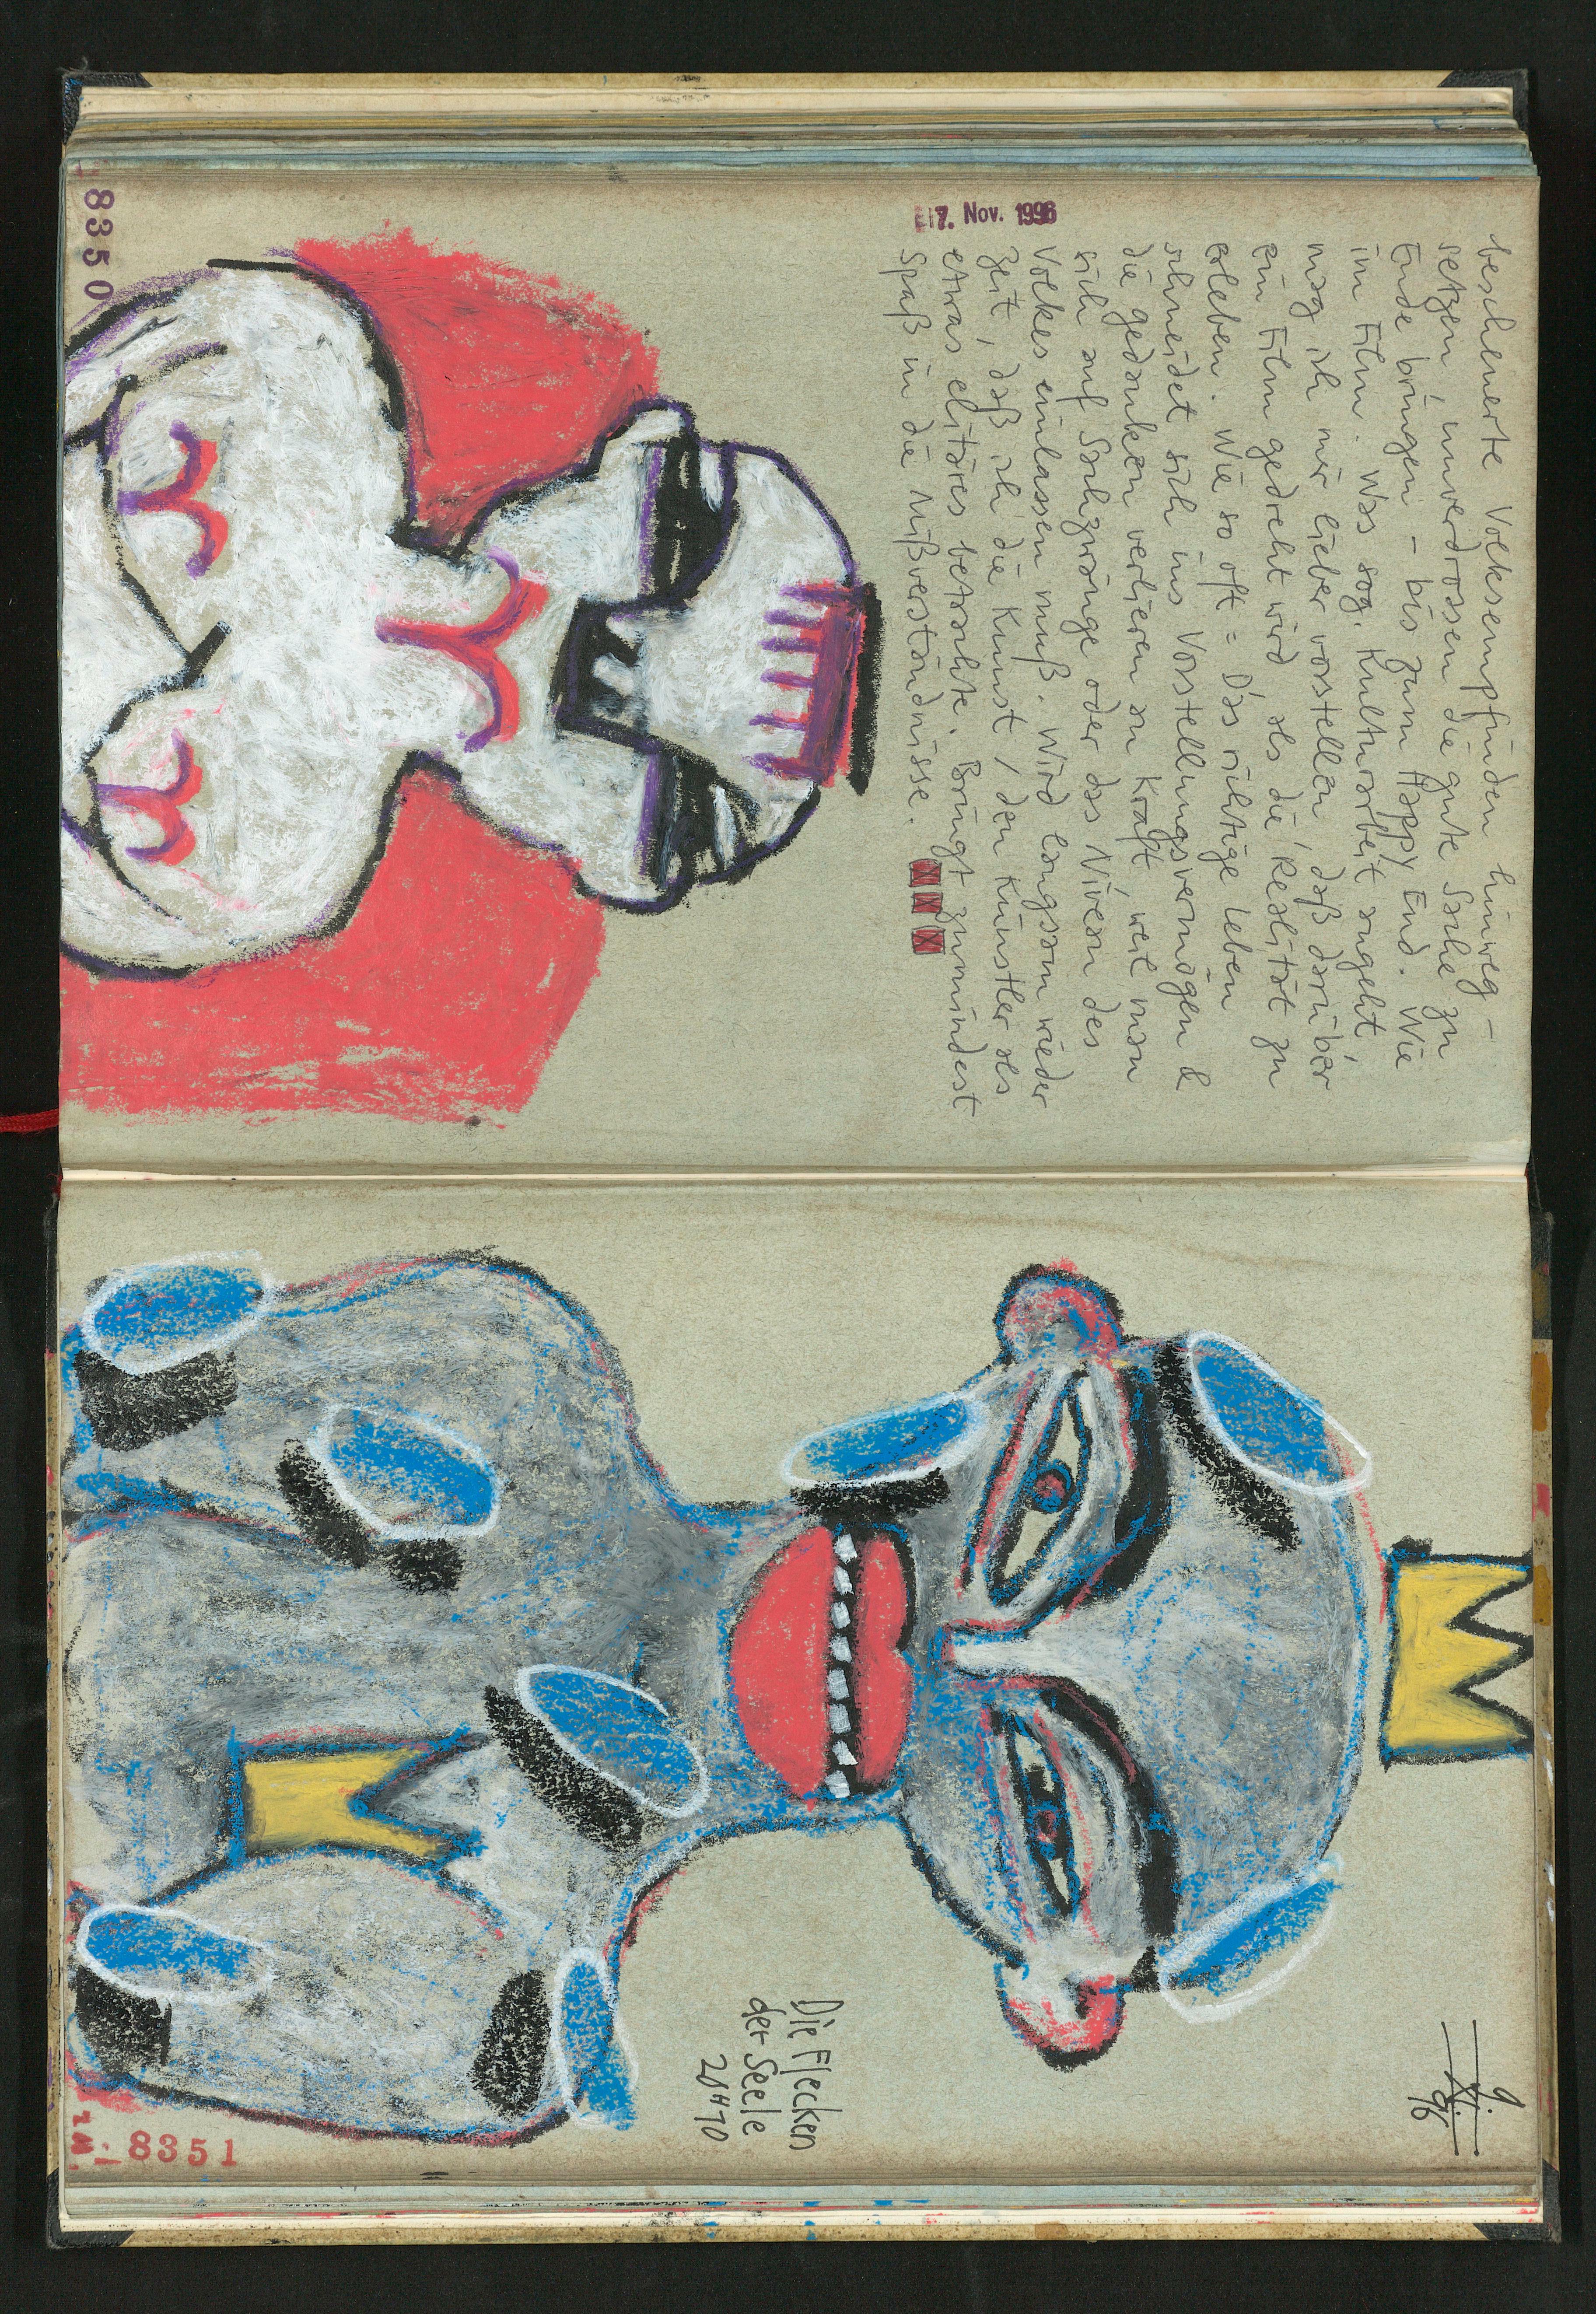 bescheuerte Volksempfinden hinweg-
setzen, unverdrossen die gute Sache zu
Ende bringen – bis zum Happy End. Wie
im Film. Was sog. Kulturarbeit angeht,
mag ich mir lieber vorstellen, daß darüber
ein Film gedreht wird als die Realität zu
erleben. Wie so oft: Das richtige Leben
schneidet sich ins Vorstellungsvermögen &
die Gedanken verlieren an Kraft, weil man
sich auf Sachzwänge oder das Niveau des
Volkes einlassen muß. Wird langsam wieder
Zeit, daß ich die Kunst / den Künstler als
etwas elitäres betrachte. Bringt zumindest
Spaß in die Mißverständnisse.
17. Nov. 1996
8350
9. XI. 96
Die Flecken
der Seele
20H10
8351